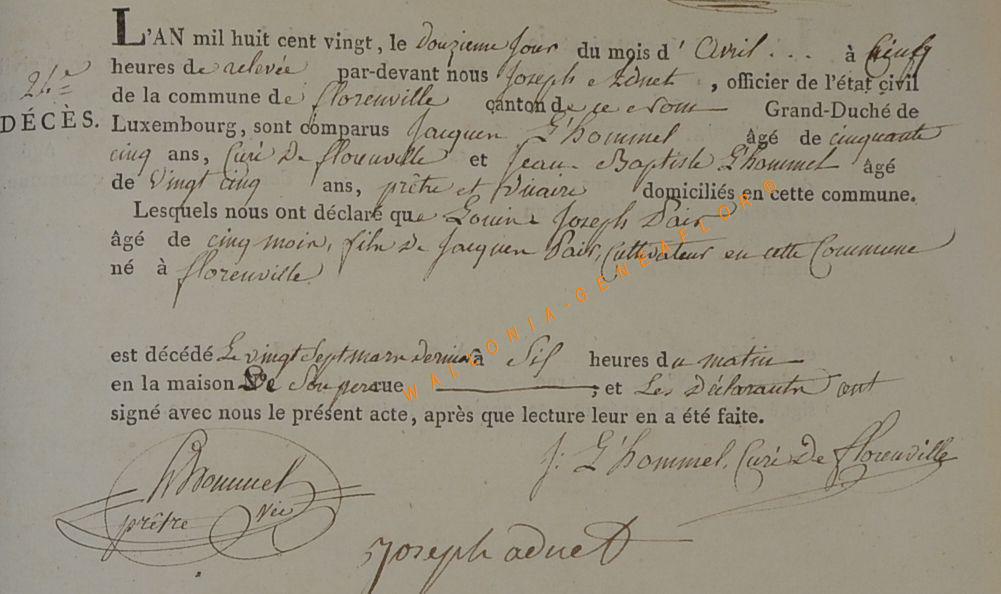 L'AN mil huit cent vingt, le Douzieme Jour du mois d' Avril . . . à Cinq
24e heures de relevée par-devant nous Joseph Adnet, officier de l'état civil
DÉCÈS. de la commune de florenville canton de ce nom Grand-Duché de
Luxembourg, sont comparus Jacques L'hommel âgé de cinquante
cinq ans, Curé De florenville et Jean Baptiste L'hommel âgé
de Vingt cinq ans, prêtre et Vicaire domiciliés en cette commune.
Lesquels nous ont déclaré que Louis Joseph Pair
âgé de cinq mois, fils De Jacques Pair, Cultivateur en cette Commune
né à florenville
est décédé Le vingt Sept mars dernier à Six heures du matin
en la maison De Son pere rue ; et Les Déclarants ont
signé avec nous le présent acte, après que lecture leur en a été faite.
J: L'hommel, Curé De florenville
prêtre vic
Joseph adnet
WALLONIA-GENEAFLOR®